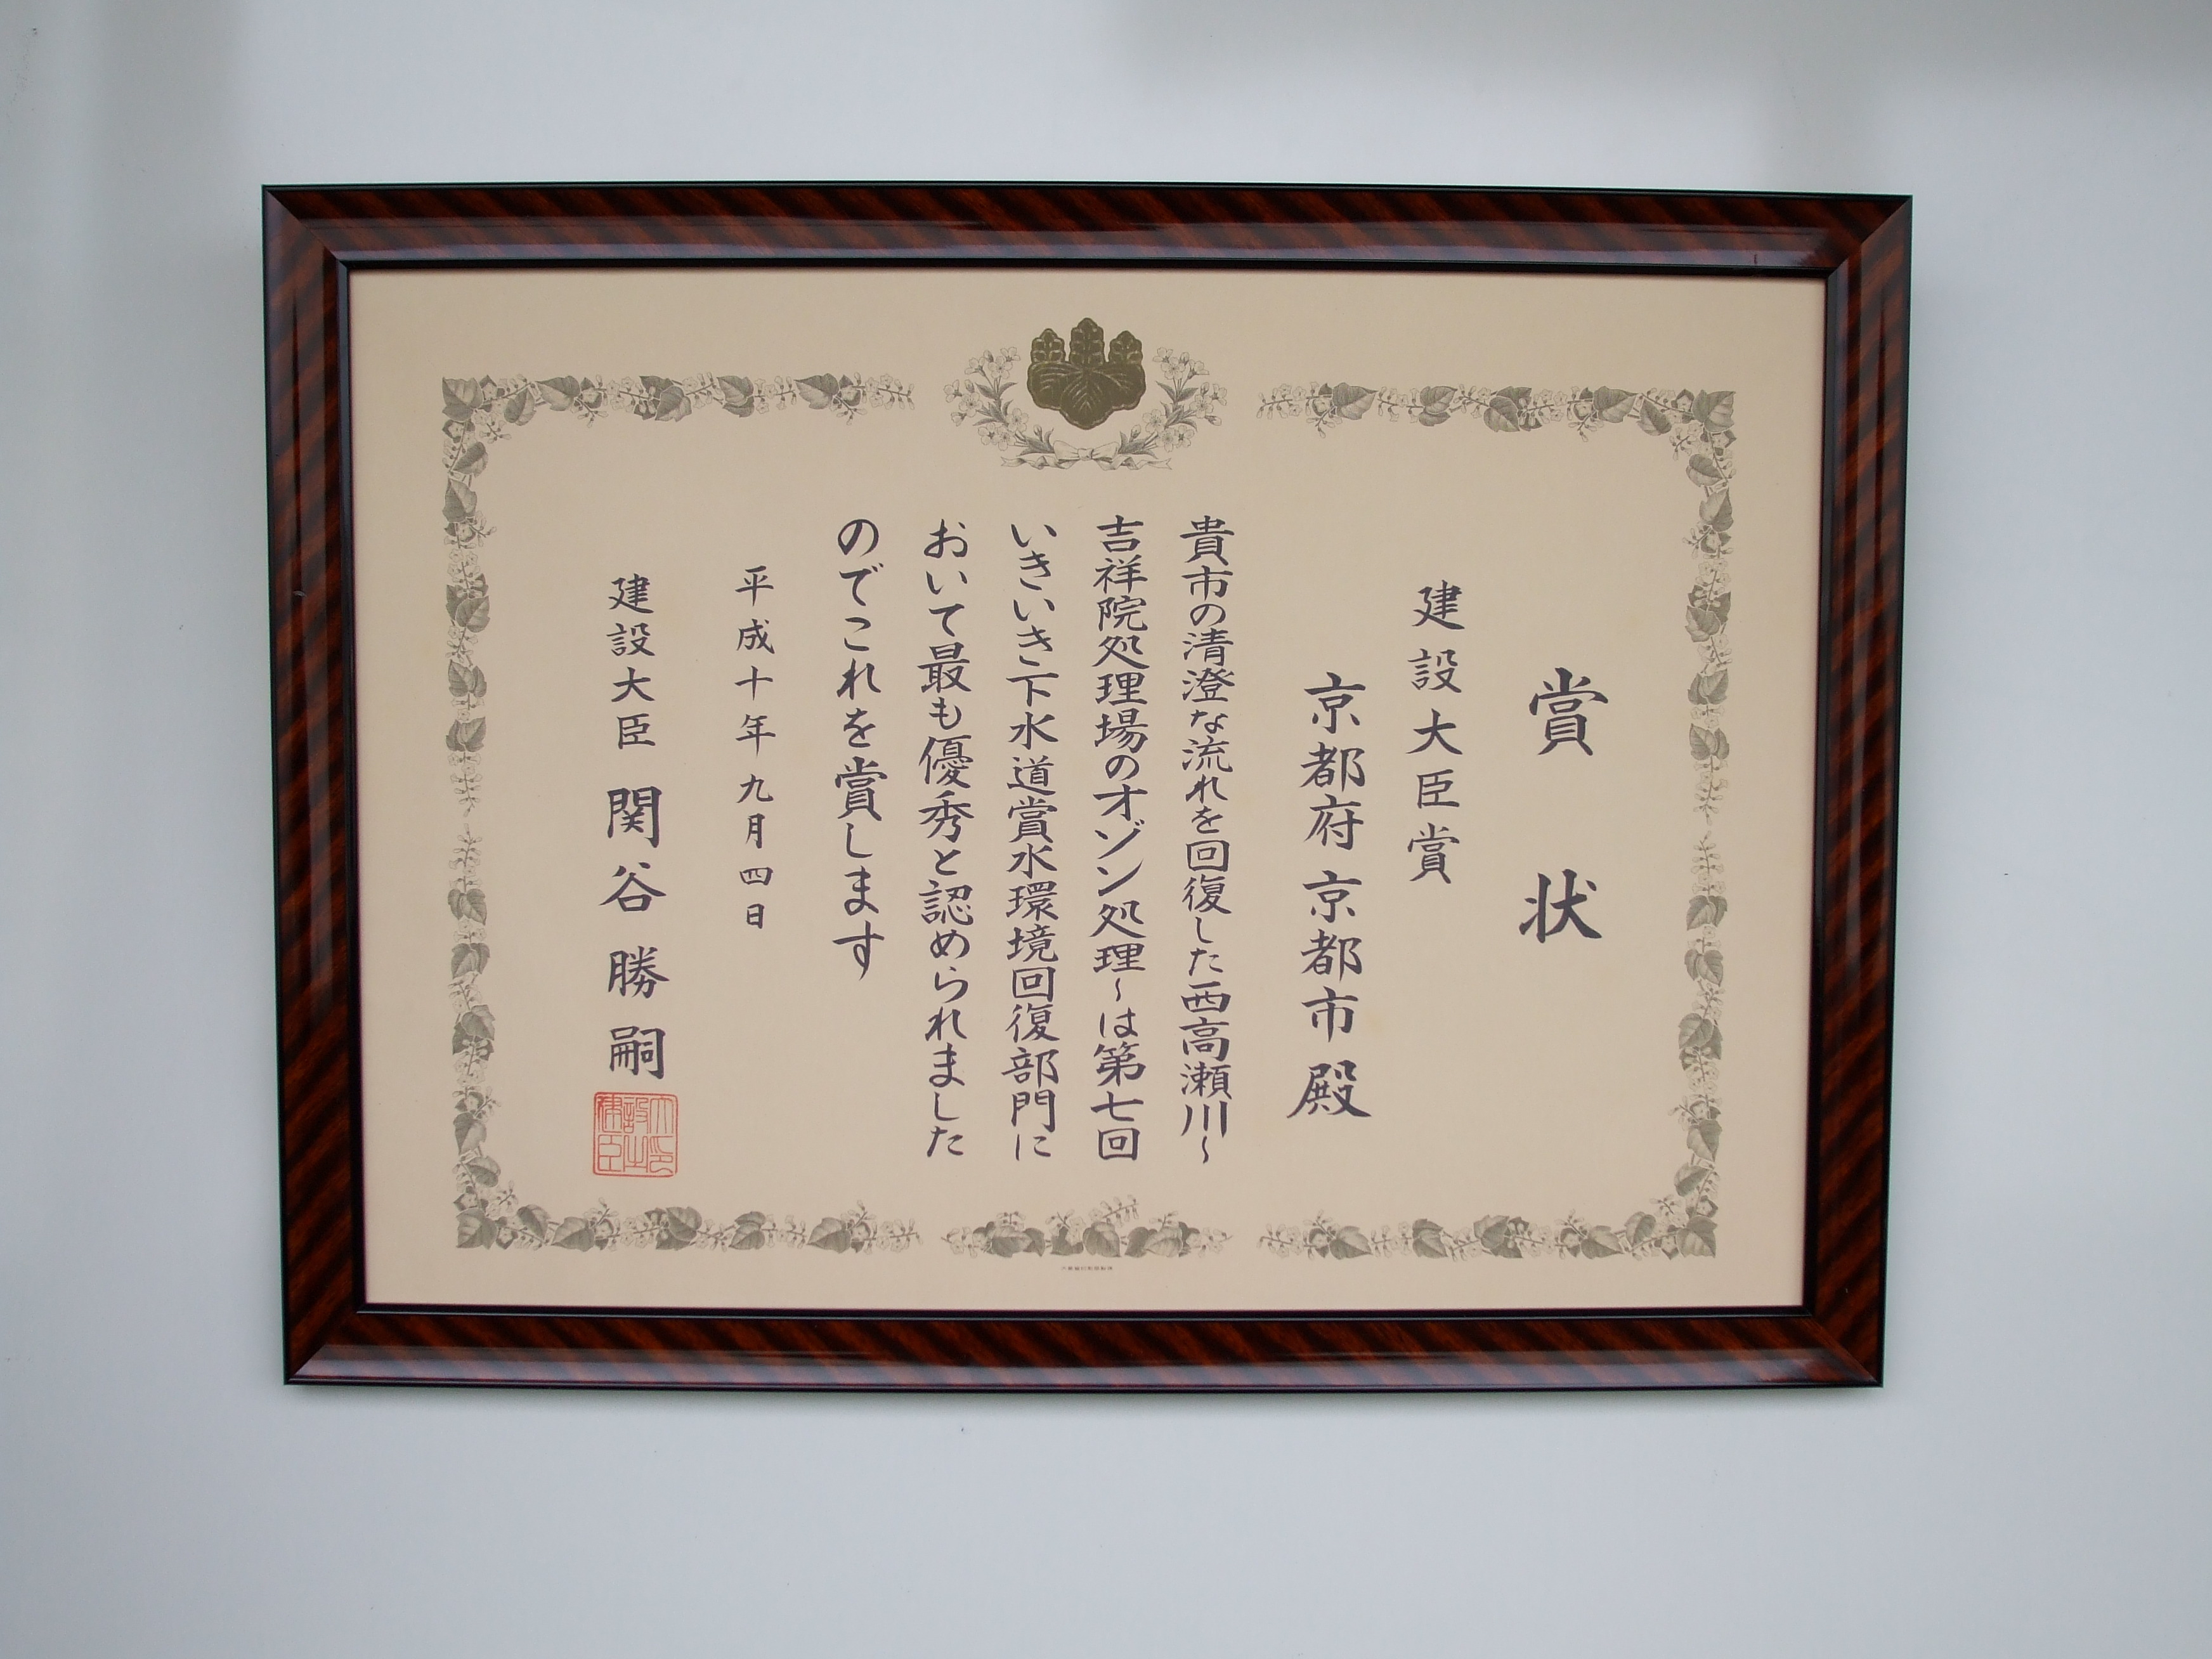 賞状
建設大臣賞
京都府京都市殿
貴市の清澄な流れを回復した西高瀬川~
吉祥院処理場のオゾン処理~は第七回
いきいき下水道賞水環境回復部門に
おいて最も優秀と認められました
のでこれを賞します
平成十年九月四日
建設大臣 関谷勝嗣